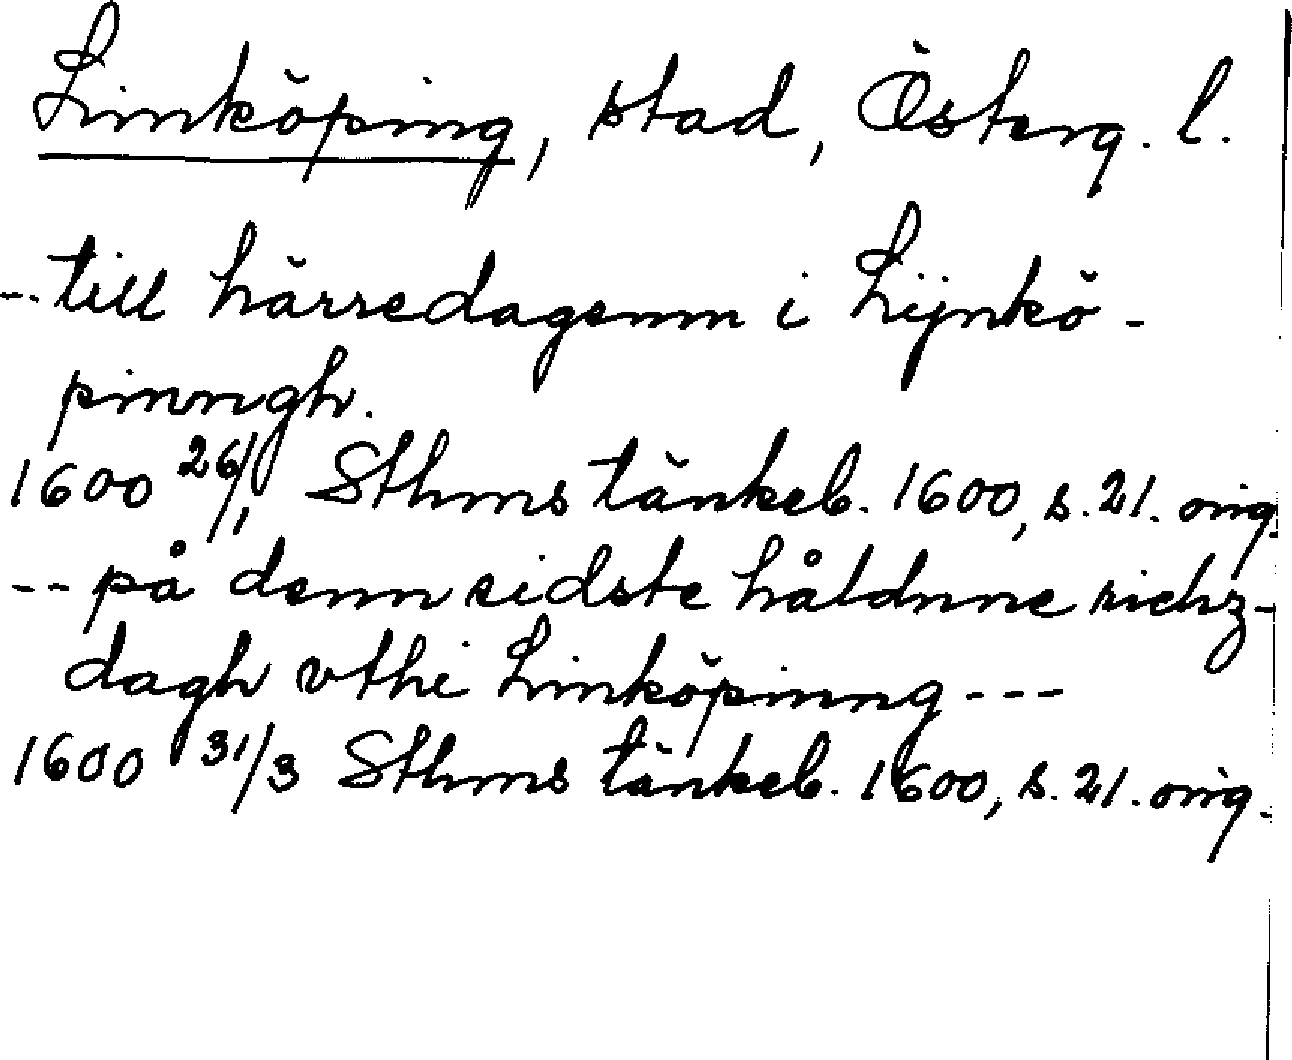 Linköping, stad, Österg. l.
--till härredagenn i Lijnkö-
pinngh.
1600 26/1 Sthms tänkeb. 1600, s. 21. orig.
-- på denn sidste håldnne richz-
dagh vthi Linköpinng ---
1600 31/3 Sthms tänkeb. 1600, s. 21. orig.